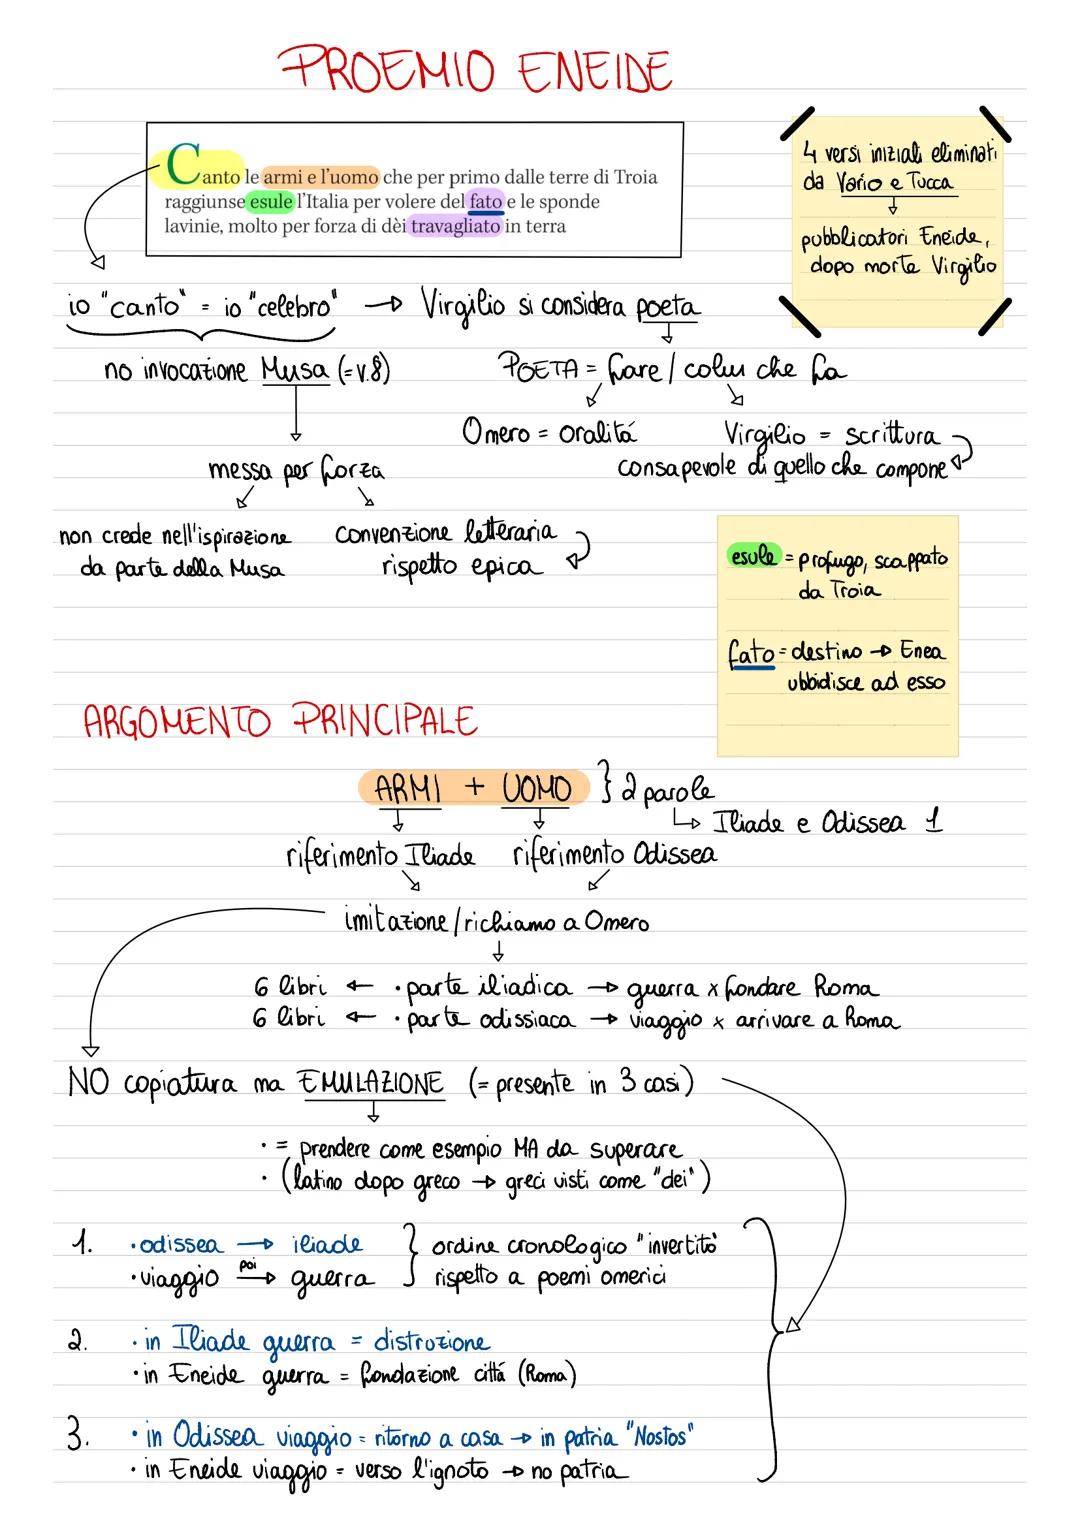 PROEMIO ENEIDE
Canto le armi e l'uomo che per primo dalle terre di Troia
raggiunse esule l'Italia per volere del fato e le sponde
lavinie, molto per forza di dèi travagliato in terra
4 versi iniziali eliminati
da Vario e Tucca
pubblicatori Eneide,
dopo morte Virgilio
io "canto" = io "celebro" → Virgilio si considera poeta
no invocazione Musa (=v.8)
POETA = fare / colui che fa
Omero = oralitá
Virgilio = scrittura
consapevole di quello che compone
messa per forza
non crede nell'ispirazione
da parte della Musa
convenzione letteraria
rispetto epica
esule = profugo, scappato
da Troia
fato = destino → Enea
ubbidisce ad esso
ARGOMENTO PRINCIPALE
ARMI + UOMO } 2 parole
↳ Iliade e Odissea 1
riferimento Iliade riferimento Odissea
imitazione / richiamo a Omero
6 libri ← • parte iliadica → guerra x fondare Roma
6 libri ← • parte odissiaca → viaggio x arrivare a Roma
NO copiatura ma EMULAZIONE (= presente in 3 casi)
• = prendere come esempio MA da superare
• (latino dopo greco → greci visti come "dei")
1. • odissea → iliade } ordine cronologico "invertito"
• viaggio poi → guerra rispetto a poemi omerici
2. • in Iliade guerra = distruzione
• in Eneide guerra = fondazione cittá (Roma)
3. • in Odissea viaggio = ritorno a casa → in patria "Nostos"
• in Eneide viaggio = verso l'ignoto → no patria